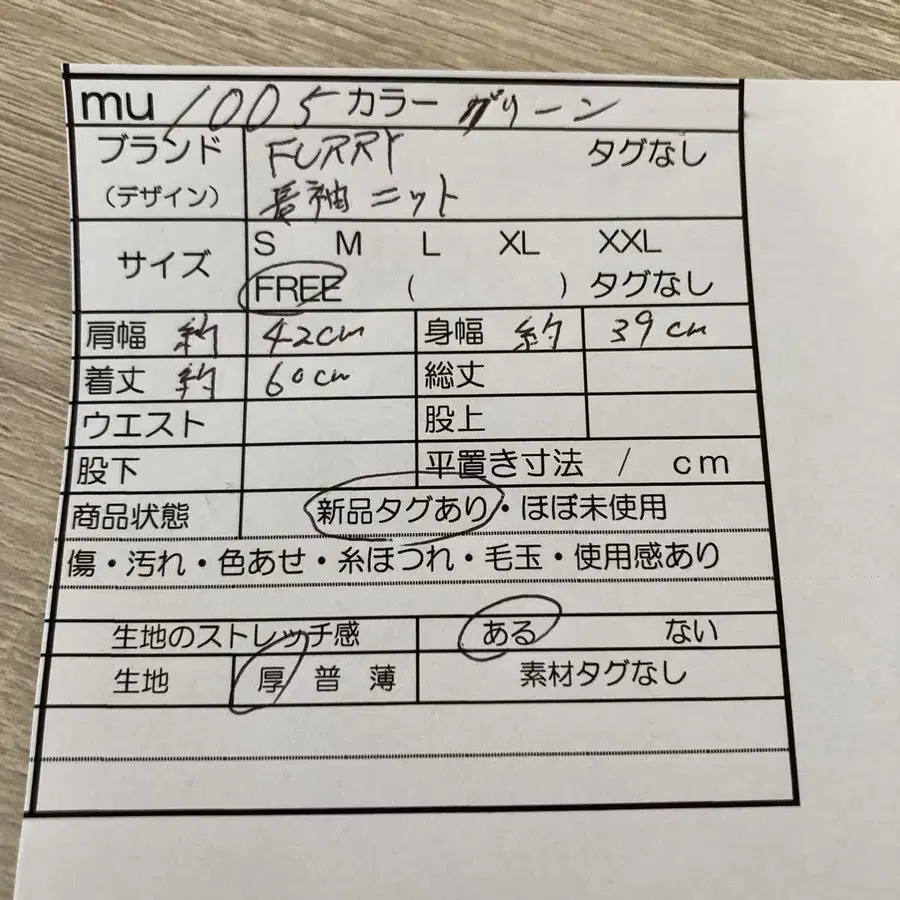 mu 1005 カラー グリーン
ブランド FURRY タグなし
(デザイン) 長袖 ニット
サイズ S M L XL XXL
FREE ( ) タグなし
肩幅 約 42cm 身幅 約 39cm
着丈 約 60cm 総丈
ウエスト 股上
股下 平置き寸法 / cm
商品状態 新品タグあり・ほぼ未使用
傷・汚れ・色あせ・糸ほつれ・毛玉・使用感あり
生地のストレッチ感 ある ない
生地 厚 普 薄 素材タグなし